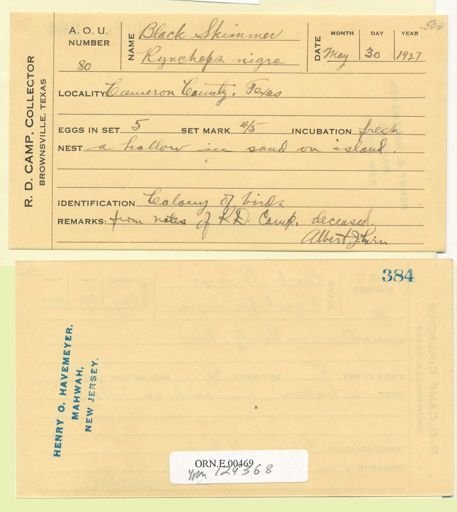 A. O. U.
NUMBER
80
NAME
Black Skimmer
Rynchops nigra
DATE
MONTH DAY YEAR
May 30 1927
384
R. D. CAMP, COLLECTOR
BROWNSVILLE, TEXAS
LOCALITY Cameron County, Texas
EGGS IN SET 5 SET MARK 4/5 INCUBATION fresh
NEST a hollow in sand on island.
IDENTIFICATION Colony of birds
REMARKS: from notes of R.D. Camp, deceased.
Albert J.
384
HENRY O. HAVEMEYER,
MAHWAH,
NEW JERSEY.
ORN.E.00469
YPM 129368